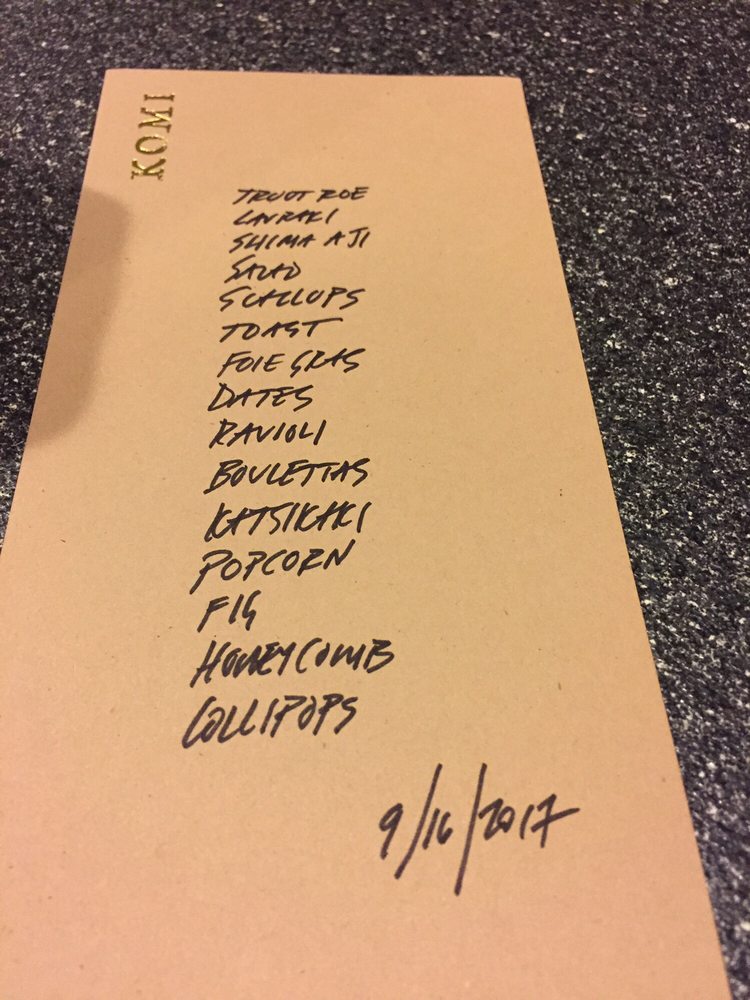 KOMI
TROUT ROE
LAVRAKI
SHIMA AJI
SALAD
SCALLOPS
TOAST
FOIE GRAS
DATES
RAVIOLI
BOULETTAS
KATSIKAKI
POPCORN
FIG
HONEYCOMB
LOLLIPOPS
9/16/2017